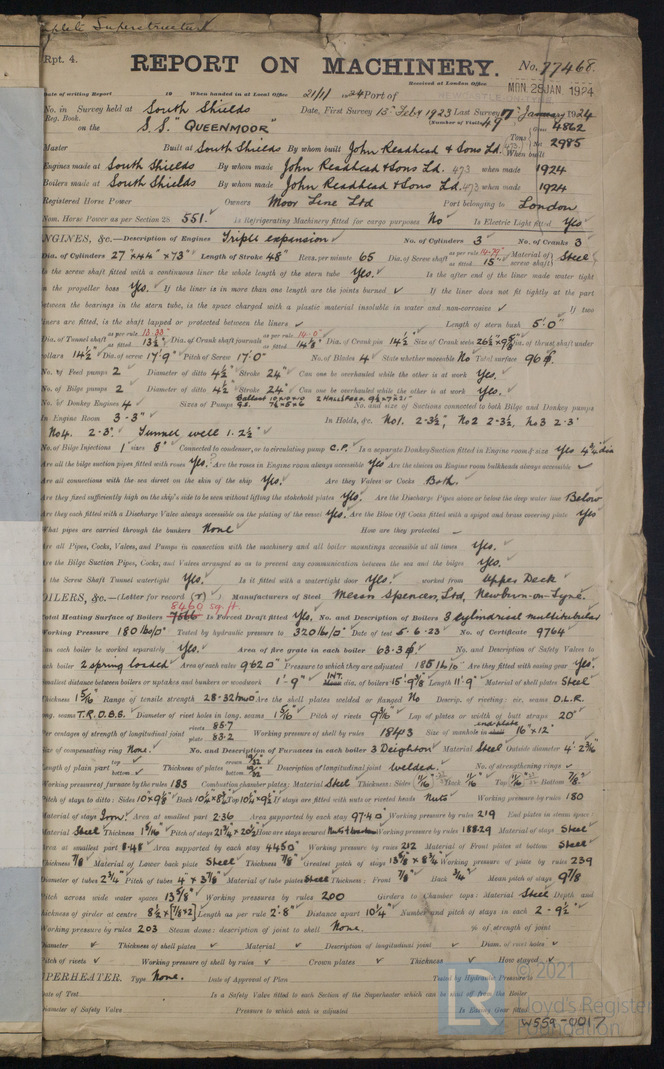 Complete Superstructure
Rpt. 4.
REPORT ON MACHINERY.
No. 77468.
Received at London Office MON. 28 JAN. 1924
Date of writing Report 19 When handed in at Local Office 21/1/1924 Port of
No. in Reg. Book. Survey held at South Shields Date, First Survey 15 Feby 1923 Last Survey 17 January 1924
(Number of Visits 49)
on the S.S. "QUEENMOOR" Tons Gross 4862 Net 2985
Master Built at South Shields By whom built John Readhead & Sons Ld. 473 When built
Engines made at South Shields By whom made John Readhead & Sons Ld. 473 when made 1924
Boilers made at South Shields By whom made John Readhead & Sons Ld. 473 when made 1924
Registered Horse Power Owners Moor Line Ltd Port belonging to London
Nom. Horse Power as per Section 28 551. Is Refrigerating Machinery fitted for cargo purposes No Is Electric Light fitted Yes
ENGINES, &c.—Description of Engines Triple expansion No. of Cylinders 3 No. of Cranks 3
Dia. of Cylinders 27" x 44" x 73" Length of Stroke 48" Revs. per minute 65 Dia. of Screw shaft as per rule 14.79" as fitted 15" Material of screw shaft Steel
Is the screw shaft fitted with a continuous liner the whole length of the stern tube Yes. Is the after end of the liner made water tight
in the propeller boss Yes. If the liner is in more than one length are the joints burned If the liner does not fit tightly at the part
between the bearings in the stern tube, is the space charged with a plastic material insoluble in water and non-corrosive If two
liners are fitted, is the shaft lapped or protected between the liners Length of stern bush 5'-0"
Dia. of Tunnel shaft as per rule 13.33 as fitted 13½" Dia. of Crank shaft journals as per rule 14.0" as fitted 14⅛" Dia. of Crank pin 14½ Size of Crank webs 26½ x 9⅝ Dia. of thrust shaft under
collars 14½" Dia. of screw 17'-9" Pitch of Screw 17'-0" No. of Blades 4 State whether moveable No Total surface 96
No. of Feed pumps 2 Diameter of ditto 4½" Stroke 24" Can one be overhauled while the other is at work Yes.
No. of Bilge pumps 2 Diameter of ditto 4½" Stroke 24" Can one be overhauled while the other is at work Yes.
No. of Donkey Engines 4 Sizes of Pumps Ballast 10x10x10 G.S. 7½x5x6 No. and size of Suctions connected to both Bilge and Donkey pumps
In Engine Room 3-3" In Holds, &c. No1. 2-3½", No2 2-3½", No3 2-3"
No4. 2-3" Tunnel well 1-2½"
No. of Bilge Injections 1 sizes 8" Connected to condenser, or to circulating pump C.P. Is a separate Donkey Suction fitted in Engine room & size Yes 4¾ dia
Are all the bilge suction pipes fitted with roses Yes. Are the roses in Engine room always accessible Yes Are the sluices on Engine room bulkheads always accessible
Are all connections with the sea direct on the skin of the ship Yes. Are they Valves or Cocks Both.
Are they fixed sufficiently high on the ship's side to be seen without lifting the stokehold plates Yes. Are the Discharge Pipes above or below the deep water line Below
Are they each fitted with a Discharge Valve always accessible on the plating of the vessel Yes. Are the Blow Off Cocks fitted with a spigot and brass covering plate Yes
What pipes are carried through the bunkers None How are they protected
Are all Pipes, Cocks, Valves, and Pumps in connection with the machinery and all boiler mountings accessible at all times Yes.
Are the Bilge Suction Pipes, Cocks, and Valves arranged so as to prevent any communication between the sea and the bilges Yes.
Is the Screw Shaft Tunnel watertight Yes. Is it fitted with a watertight door Yes. worked from Upper Deck
BOILERS, &c.—(Letter for record (S)) Manufacturers of Steel Messrs Spencers, Ltd, Newburn-on-Tyne.
8460 sq. ft.
Total Heating Surface of Boilers Is Forced Draft fitted Yes. No. and Description of Boilers 3 cylindrical multitubular
Working Pressure 180 lbs/□" Tested by hydraulic pressure to 320 lb/□" Date of test 5.6.23 No. of Certificate 9764
Can each boiler be worked separately Yes. Area of fire grate in each boiler 63.3 No. and Description of Safety Valves to
each boiler 2 spring loaded Area of each valve 9.62□" Pressure to which they are adjusted 185 lb/□" Are they fitted with easing gear Yes.
Smallest distance between boilers or uptakes and bunkers or woodwork 1'-9" INT. dia. of boilers 15'-9⅞" Length 11'-9" Material of shell plates Steel
Thickness 1 5/16 Range of tensile strength 28-32 tons Are the shell plates welded or flanged No Descrip. of riveting: cir. seams D.L.R.
long. seams T.R.D.B.S. Diameter of rivet holes in long. seams 1 5/16" Pitch of rivets 9 3/16" Lap of plates or width of butt straps 20"
Per centages of strength of longitudinal joint rivets 85.7 plate 83.2 Working pressure of shell by rules 184.3 Size of manhole in end plate 16" x 12"
Size of compensating ring None. No. and Description of Furnaces in each boiler 3 Deighton Material Steel Outside diameter 4'-2 3/16"
Length of plain part top bottom Thickness of plates crown bottom Description of longitudinal joint welded. No. of strengthening rings
Working pressure of furnace by the rules 183 Combustion chamber plates: Material Steel Thickness: Sides 11/16" Back 11/16" Top 11/16" Bottom ⅞"
Pitch of stays to ditto: Sides 10" x 9⅞" Back 10¼ x 8¾ Top 10¼ x 9½ If stays are fitted with nuts or riveted heads Nuts Working pressure by rules 180
Material of stays Iron Area at smallest part 2.36 Area supported by each stay 97.40 Working pressure by rules 219 End plates in steam space:
Material Steel Thickness 1 5/16" Pitch of stays 21¾" x 20½ How are stays secured Working pressure by rules 188.29 Material of stays Steel
Area at smallest part 8.48 Area supported by each stay 445□" Working pressure by rules 212 Material of Front plates at bottom Steel
Thickness ⅞" Material of Lower back plate Steel Thickness ⅞" Greatest pitch of stays 13⅝" x 8¾ Working pressure of plate by rules 239
Diameter of tubes 2¾" Pitch of tubes 4" x 3⅞" Material of tube plates Steel Thickness: Front ⅞" Back ¾" Mean pitch of stays 9⅞
Pitch across wide water spaces 13⅝" Working pressures by rules 200 Girders to Chamber tops: Material Steel Depth and
thickness of girder at centre 8½ x [⅞ x 2] Length as per rule 2'-8" Distance apart 10¼" Number and pitch of stays in each 2-9½"
Working pressure by rules 203 Steam dome: description of joint to shell None. % of strength of joint
Diameter Thickness of shell plates Material Description of longitudinal joint Diam. of rivet holes
Pitch of rivets Working pressure of shell by rules Crown plates Thickness How stayed
SUPERHEATER. Type None. Date of Approval of Plan Tested by Hydraulic Pressure to
Date of Test Is a Safety Valve fitted to each Section of the Superheater which can be shut off from the Boiler
Diameter of Safety Valve Pressure to which each is adjusted Is Easing Gear fitted
LR
© 2021
Lloyd's Register
Foundation
W559-0017